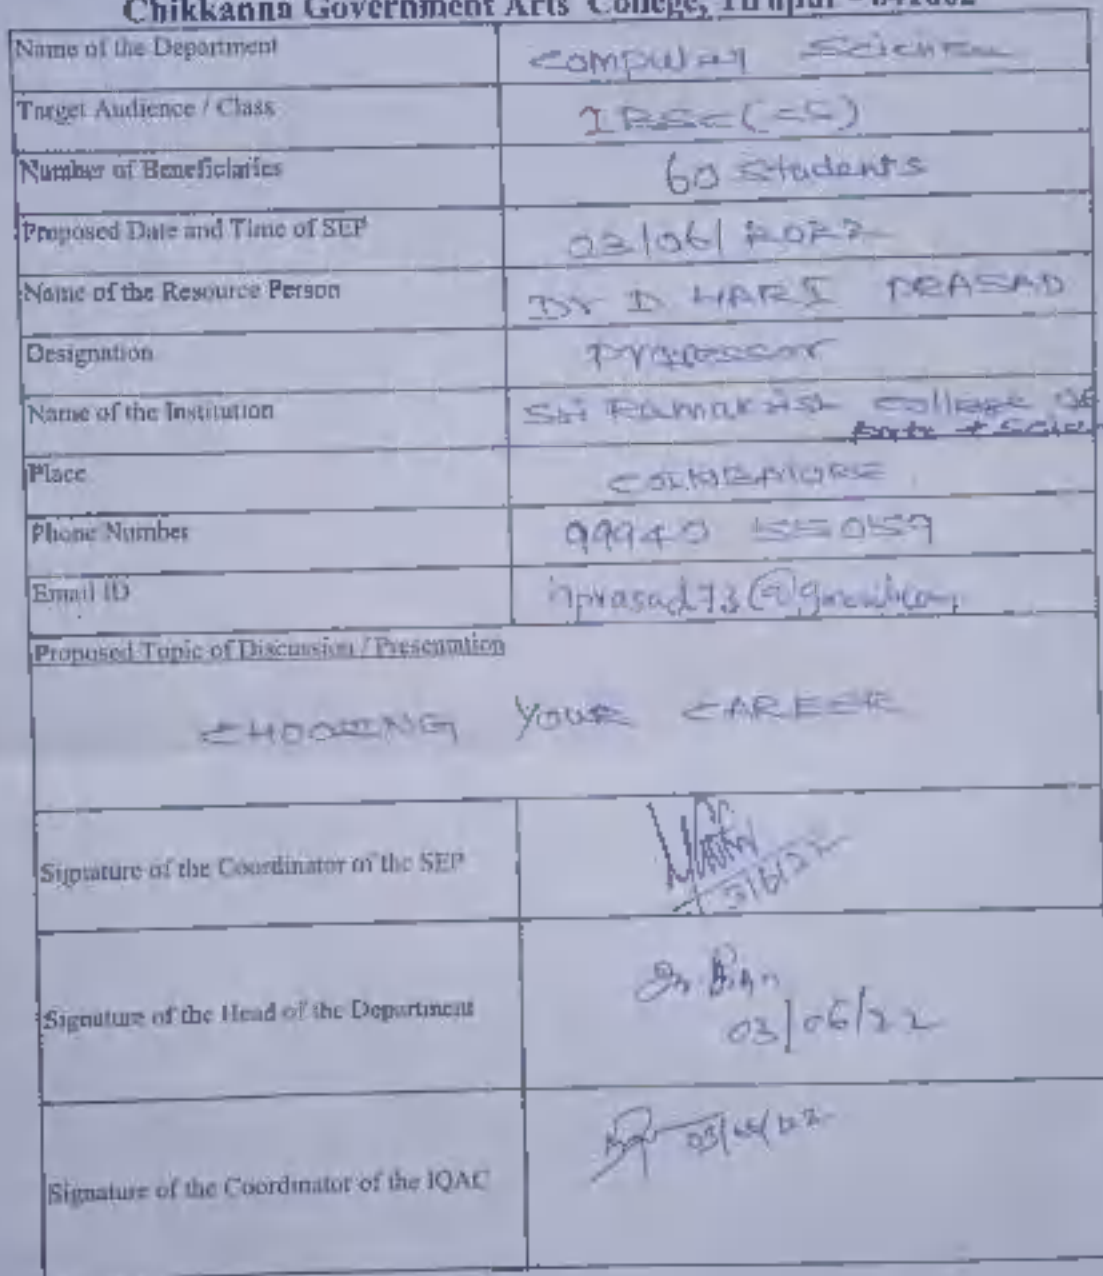 Chikkanna Government Arts College, Tirupur - 641602
Name of the Department Computer Science
Target Audience / Class I BSc (CS)
Number of Beneficiaries 60 Students
Proposed Date and Time of SEP 03/06/2022
Name of the Resource Person Dr D HARI PRASAD
Designation Professor
Name of the Institution Sri Ramakrish College of
Arts + Scie
Place COIMBATORE
Phone Number 99940 55059
Email ID hprasad73@gmail.com
Proposed Topic of Discussion / Presentation
CHOOSING YOUR CAREER
Signature of the Coordinator of the SEP
3/6/22
Signature of the Head of the Department
03/06/22
Signature of the Coordinator of the IQAC 03/06/22